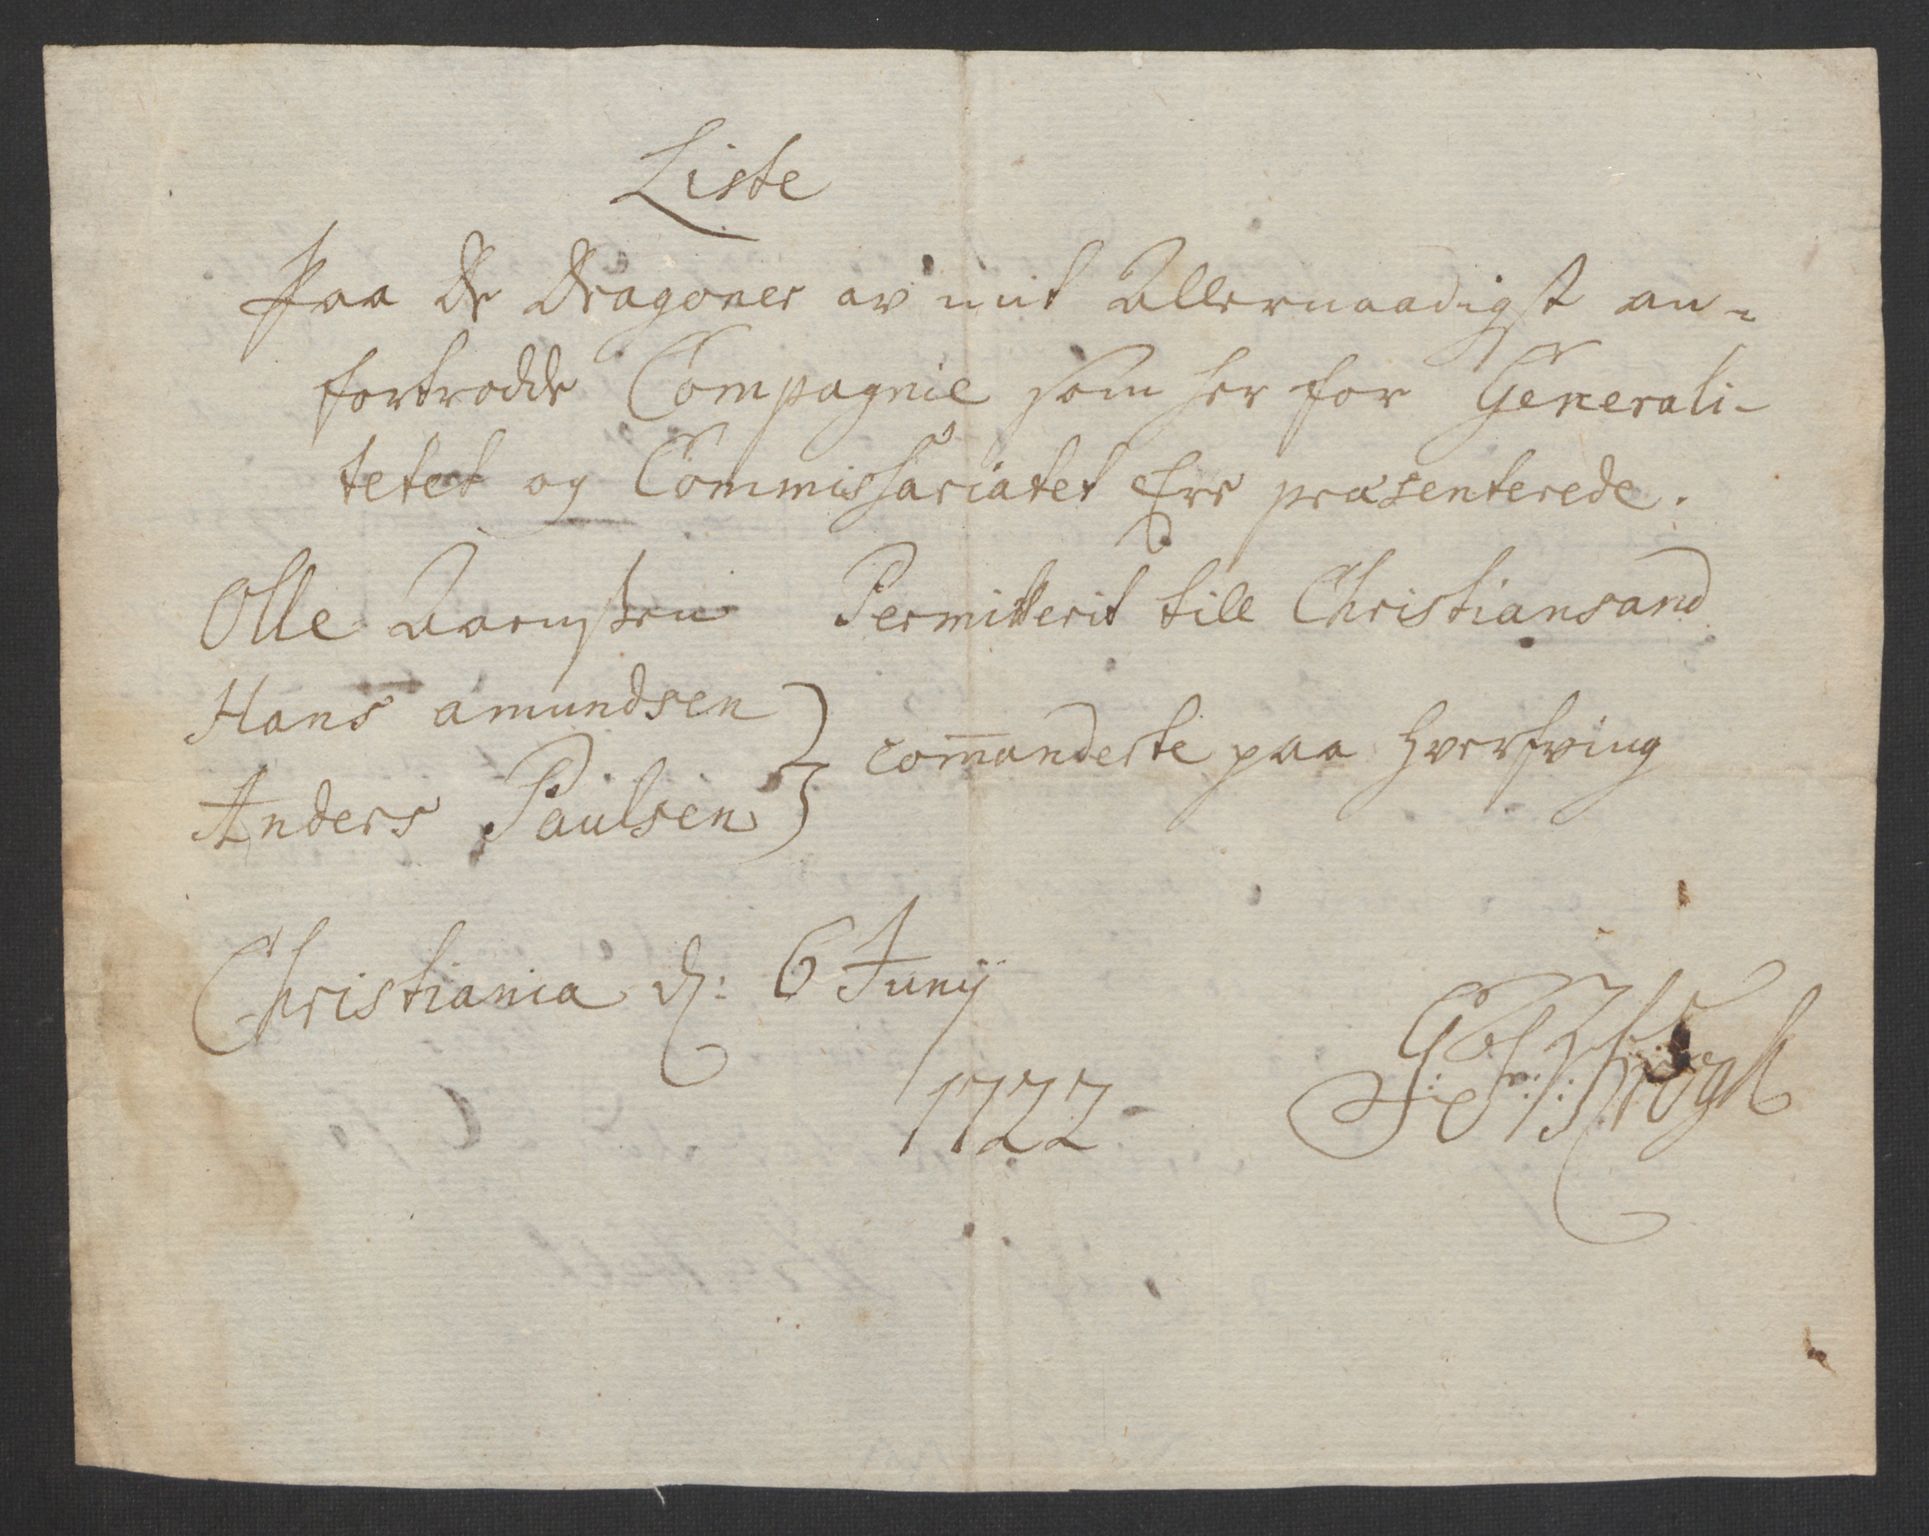 Liste
Paa de Dragoner av mit Allernaadigst an-
fortrodde Compagnie som her for Generali-
tetet og Commissariatet Ere præsenterede.
Olle Permitterit till Christiansand
Hans amundsen
Anders Paulsen } com̄anderte paa Hverfving
Christiania d: 6 Junij
1722
Krogh